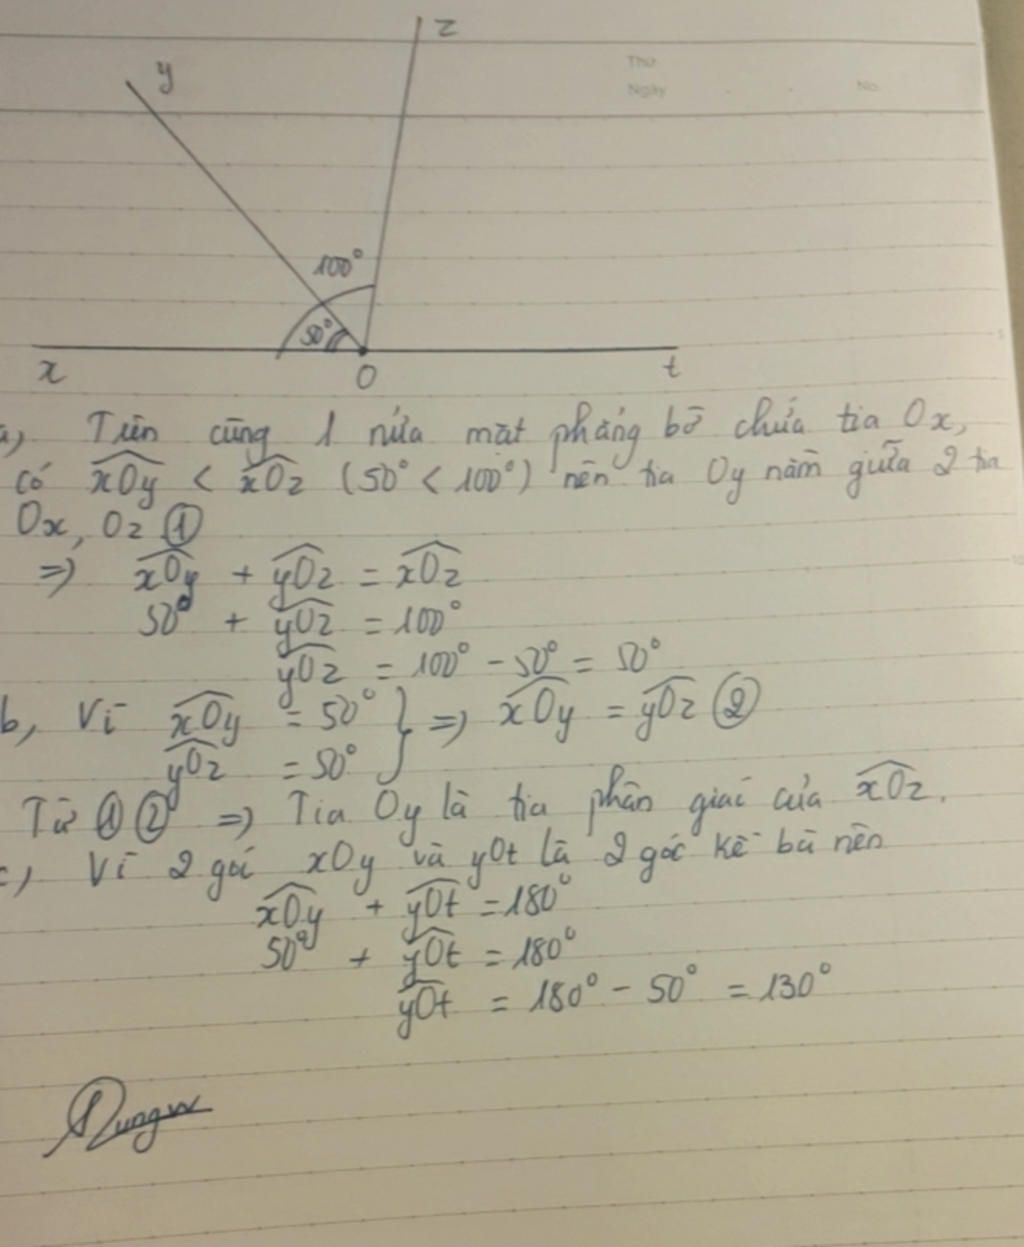 z
y
Thứ
Ngày
No.
100°
50°
x
O
t
a, Trên cùng 1 nửa mặt phẳng bờ chứa tia Ox,
có xOy < xOz (50° < 100°) nên tia Oy nằm giữa 2 tia
Ox, Oz ①
=> xOy + yOz = xOz
50° + yOz = 100°
yOz = 100° - 50° = 50°
b, Vì xOy = 50° } => xOy = yOz ②
yOz = 50°
Từ ① ② => Tia Oy là tia phân giác của xOz.
c, Vì 2 góc xOy và yOt là 2 góc kề bù nên
xOy + yOt = 180°
50° + yOt = 180°
yOt = 180° - 50° = 130°